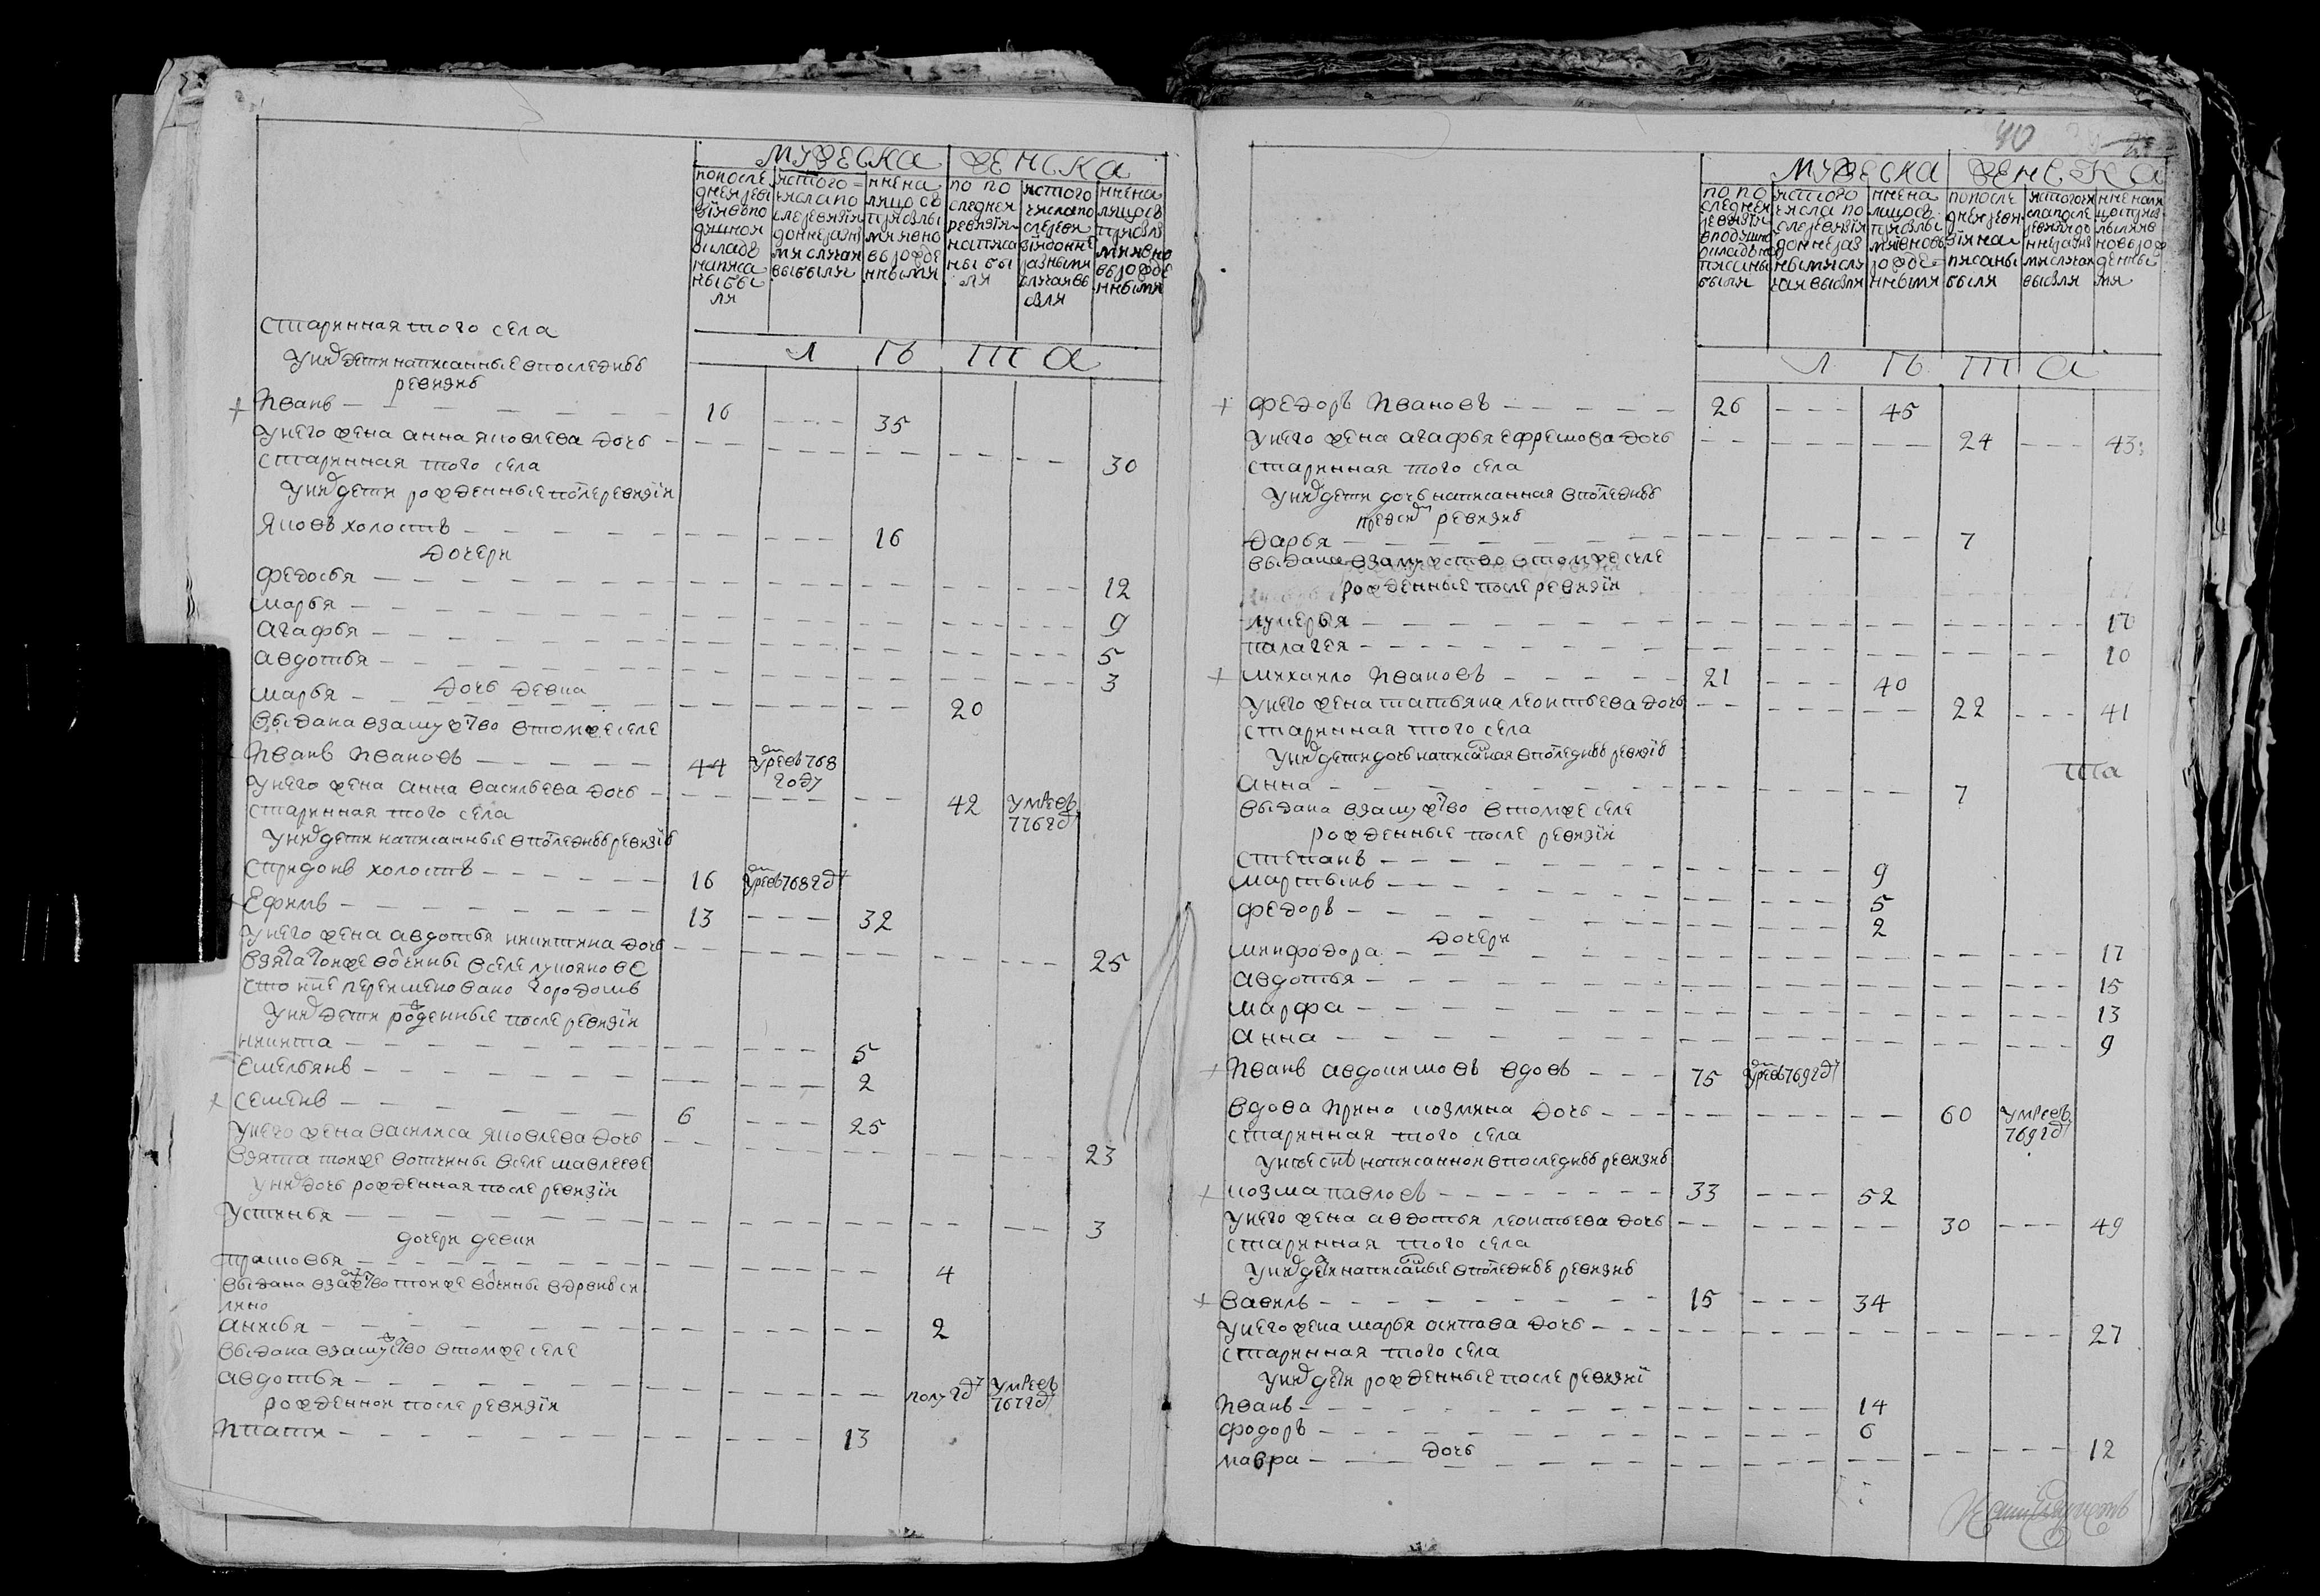 мужеска женска
по последней ревизии в подушной оклад написаны были
из того числа после ревизии до ныне разными случаи выбыли
ныне на лицо с прибылыми и вновь рожденными
по последней ревизии написаны были
из того числа после ревизии до ныне разными случаи выбыли
ныне на лицо с прибылыми и вновь рожденными
лѣта
старинная того села
у них дети написанные в последней
ревизиѣ
Иванъ 16 35
у него жена анна яковлева дочь
старинная того села 30
у них дети рожденные после ревизїи
яковъ холостъ 16
дочери
федосья 12
марья 9
агафья 5
авдотья 3
дочь девка
марья 20
выдана в замужство в том же селе
Иванъ Ивановъ 44 умре въ 768 году
у него жена анна васильева дочь 42 умре въ 776 году
старинная того села
у них дети написанные в последней ревизїи
спридонъ холостъ 16 умре въ 768 году
Ефимъ 13 32
у него жена авдотья никитина дочь
взята той же вотчины в селе лукоянове 25
что ныне переименовано городомъ
у них дети рожденные после ревизїи
никита 5
емельянъ 2
семенъ 6 25
у него жена василиса яковлева дочь
взята той же вотчины в селе мавлееве 23
у них дочь рожденная после ревизїи
устинья 3
дочери девки
прасковья 4
выдана в замужство той же вотчины в деревню
анисья 2
выдана в замужство в том же селе
авдотья полугоду умре въ 767 году
рожденной после ревизїи
Ипатъ 13
40
мужеска женска
по последней ревизїи в подушной оклад написаны были
из того числа после ревизїи до ныне разными случаи выбыли
ныне на лицо с прибылыми и вновь рожденными
по последней ревизии написаны были
из того числа после ревизии до ныне разными случаи выбыли
ныне на лицо с прибылыми и вновь рожденными
лѣта
федоръ Ивановъ 26 45
у него жена агафья ефремова дочь 24 43
старинная того села
у них дети дочь написанная в последней
пред сим ревизиѣ
дарья 7
выдана в замужство в том же селе
рожденные после ревизїи
лукерья 17
палагея 10
михаило Ивановъ 21 40
у него жена татьяна леонтьева дочь 22 41
старинная того села
у них дети дочь написанная в последней ревизїи
анна 7
выдана в замужство в том же селе
рожденные после ревизїи
степанъ 9
мартынъ 5
федоръ 2
дочери
минфодора 17
авдотья 15
марфа 13
анна 9
Иванъ авдокимовъ вдовъ 75 умре въ 769 году
вдова Ирина козмина дочь 60 умре въ 769 году
старинная того села
у нее сынъ написанной в последней ревизиѣ
козма павловъ 33 52
у него жена авдотья леонтьева дочь 30 49
старинная того села
у них дети написанные в последней ревизиѣ
василь 15 34
у него жена марья осипова дочь 27
старинная того села
у них дети рожденные после ревизиї
Иванъ 14
фодоръ 6
дочь
мавра 12